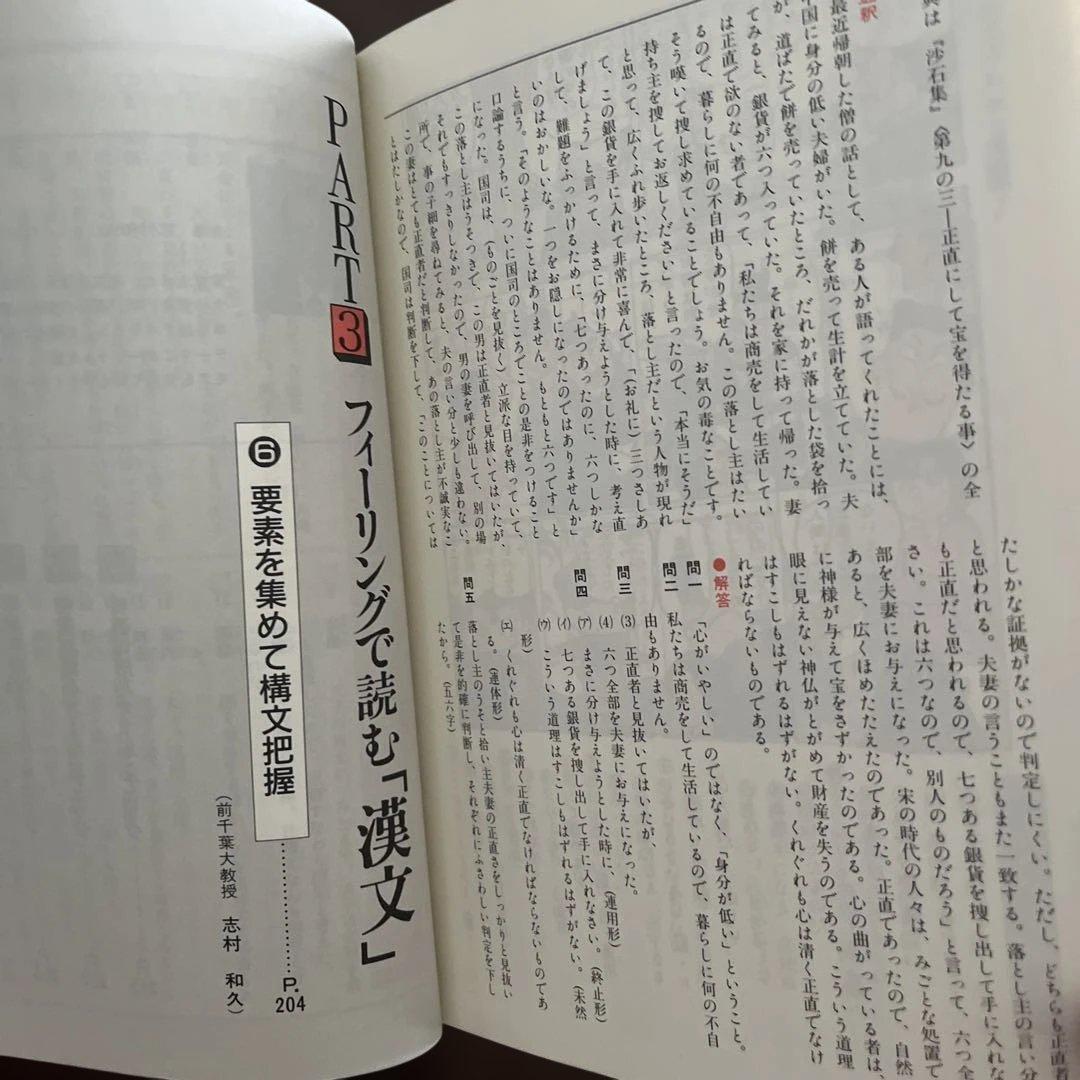 典は『沙石集』〈第九の三―正直にして宝を得たる事〉の全
通釈
最近帰朝した僧の話として、ある人が語ってくれたことには、
中国に身分の低い夫婦がいた。餅を売って生計を立てていた。夫
が、道ばたで餅を売っていたところ、だれかが落とした袋を拾っ
てみると、銀貨が六つ入っていた。それを家に持って帰った。妻
は正直で欲のない者であって、「私たちは商売をして生活してい
るので、暮らしに何の不自由もありません。この落とし主はたい
そう嘆いて捜し求めていることでしょう。お気の毒なことです。
持ち主を捜してお返しください」と言ったので、「本当にそうだ」
と思って、広くふれ歩いたところ、落とし主だという人物が現れ
て、この銀貨を手に入れて非常に喜んで、「(お礼に)三つさしあ
げましょう」と言って、まさに分け与えようとした時に、考え直
して、難題をふっかけるために、「七つあったのに、六つしかな
いのはおかしいな。一つをお隠しになったのではありませんか」
と言う。「そのようなことはありません。もともと六つです」と
口論するうちに、ついに国司のところでことの是非をつけること
になった。国司は、(ものごとを見抜く)立派な目を持っていて、
この落とし主はうそつきで、この男は正直者と見抜いてはいたが、
それでもすっきりしなかったので、男の妻を呼び出して、別の場
所で、事の子細を尋ねてみると、夫の言い分と少しも違わない。
この妻はとても正直者だと判断して、あの落とし主が不誠実なこ
とはたしかなので、国司は判断を下して、「このことについては
たしかな証拠がないので判定しにくい。ただし、どちらも正直者
と思われる。夫妻の言うこともまた一致する。落とし主の言い分
も正直だと思われるので、七つある銀貨を捜し出して手に入れな
さい。これは六つなので、別人のものだろう」と言って、六つ全
部を夫妻にお与えになった。宋の時代の人々は、みごとな処置で
あると、広くほめたたえたのであった。正直であったので、自然
に神様が与えて宝をさずかったのである。心の曲がっている者は、
眼に見えない神仏がとがめて財産を失うのである。こういう道理
はすこしもはずれるはずがない。くれぐれも心は清く正直でなけ
ればならないものである。
●解答
問一 「心がいやしい」のではなく、「身分が低い」ということ。
問二 私たちは商売をして生活しているので、暮らしに何の不自
由もありません。
問三 (3) 正直者と見抜いてはいたが、
(4) 六つ全部を夫妻にお与えになった。
問四 (ア) まさに分け与えようとした時に、(連用形)
(イ) 七つある銀貨を捜し出して手に入れなさい。(終止形)
(ウ) こういう道理はすこしもはずれるはずがない。(未然
形)
(エ) くれぐれも心は清く正直でなければならないものであ
る。(連体形)
問五 落とし主のうそと拾い主夫妻の正直さをしっかりと見抜い
て是非を的確に判断し、それぞれにふさわしい判定を下し
たから。(五六字)
PART3 フィーリングで読む「漢文」
❻ 要素を集めて構文把握 ……………P.204
(前千葉大教授 志村 和久)